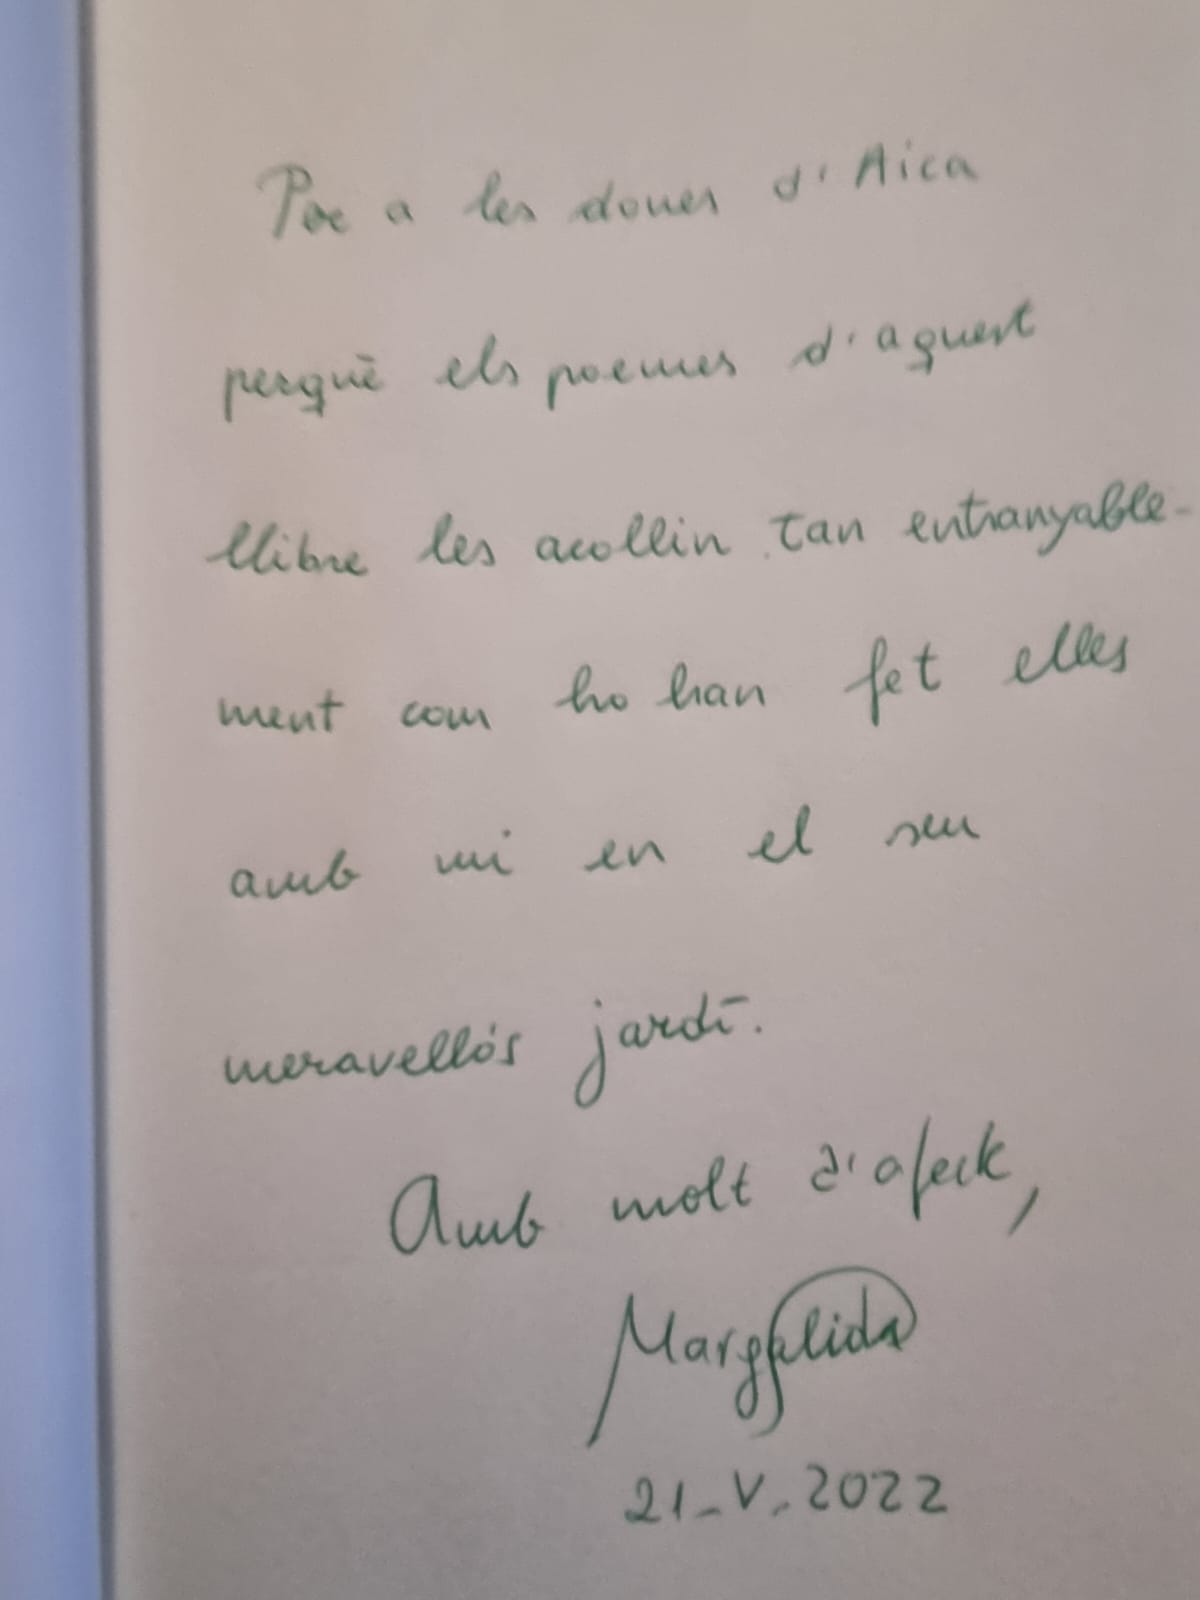 Per a les dones d'Aica
perquè els poemes d'aquest
llibre les acollin tan entranyable-
ment com ho han fet elles
amb mi en el seu
meravellós jardí.
Amb molt d'afecte,
Margalida
21-V-2022